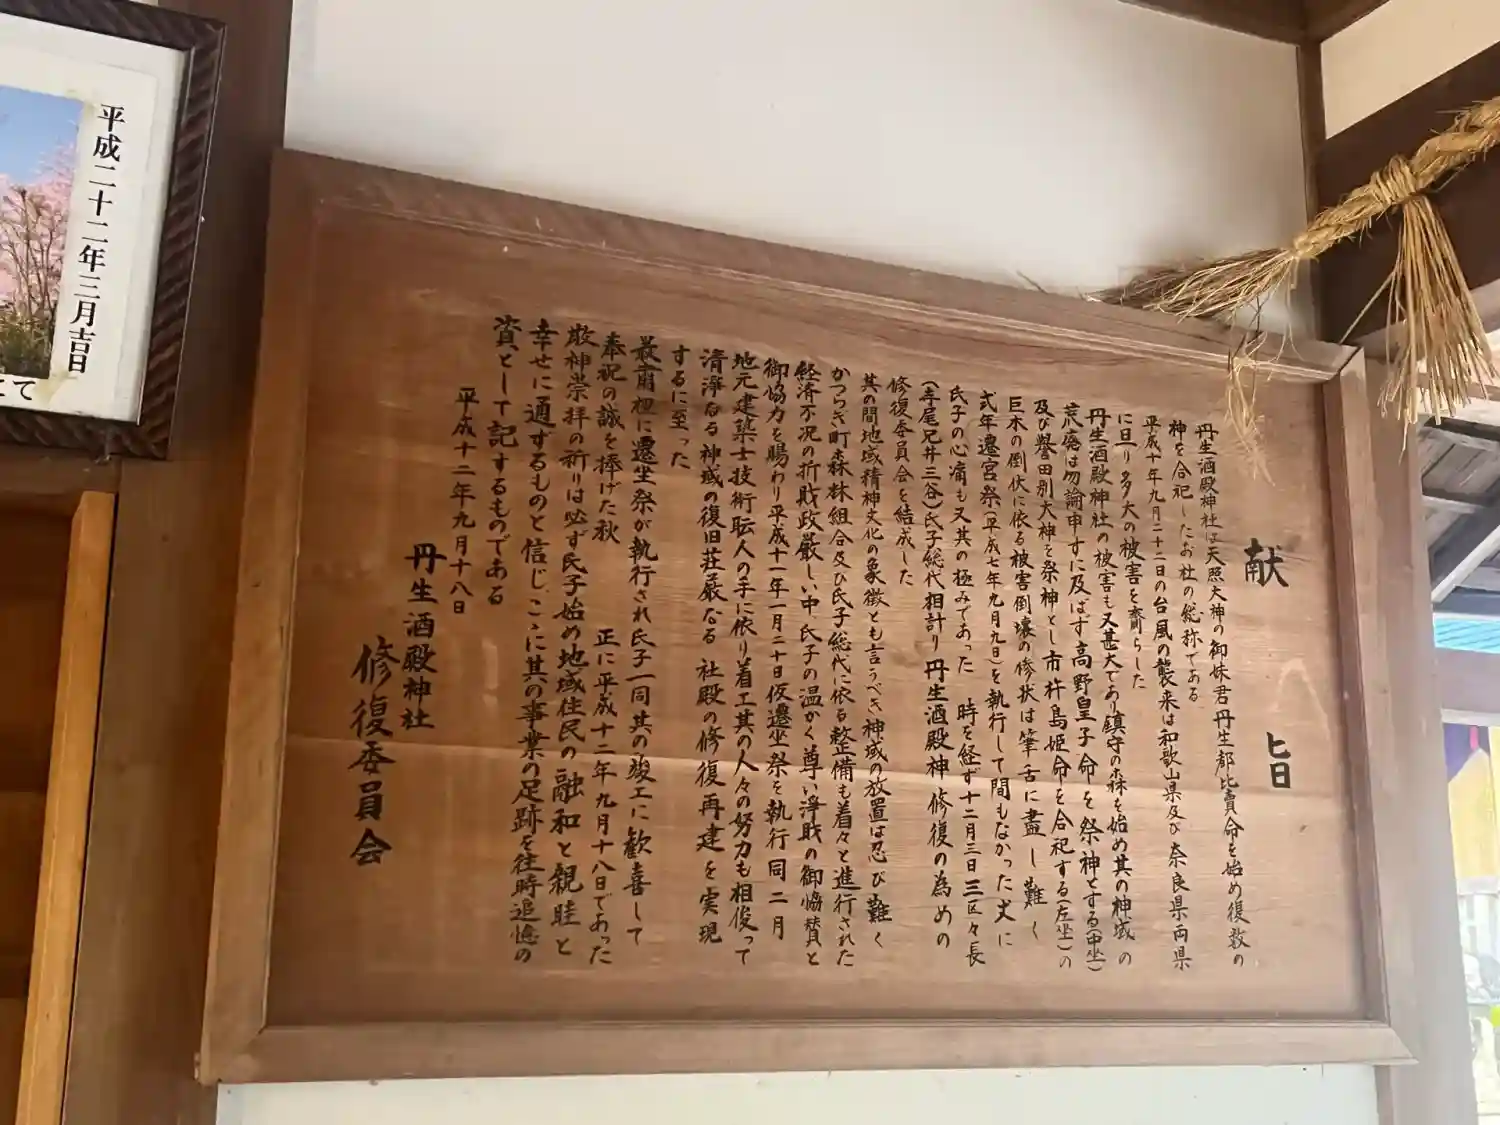 献旨
丹生酒殿神社は天照大神の御妹君丹生都比賣命を始め復数の
神を合祀したお社の総称である
平成十年九月二十二日の台風の襲来は和歌山県及び奈良県両県
に旦り多大の被害を齎らした
丹生酒殿神社の被害も又甚大であり鎮守の森を始め其の神域の
荒廃は勿論申すに及ばず高野皇子命を祭神とする(中坐)
及び誉田別大神を祭神とし市杵島姫命を合祀する(左坐)の
巨木の倒伏に依る被害倒壊の惨状は筆舌に盡し難く
式年遷宮祭(平成七年九月九日)を執行して間もなかった丈に
氏子の心痛も又其の極みであった 時を経ず十二月三日三区々長
(寺尾兄井三谷)氏子総代相計り丹生酒殿神修復の為めの
修復委員会を結成した
其の間地域精神文化の象徴とも言うべき神域の放置は忍び難く
かつらぎ町森林組合及び氏子総代に依る整備も着々と進行された
経済不況の折財政厳しい中、氏子の温かく尊い浄財の御協賛と
御協力を賜わり平成十一年一月二十日仮遷坐祭を執行同二月
地元建築士技術職人の手に依り着工其の人々の努力も相俟って
清浄なる神域の復旧荘厳なる 社殿の修復再建を実現
するに至った
最粛裡に遷坐祭が執行され氏子一同其の竣工に歓喜して
奉祝の誠を捧げた秋 正に平成十二年九月十八日であった
敬神崇拝の祈りは必ず氏子始め地域住民の融和と親睦と
幸せに通ずるものと信じここに其の事業の足跡を往時追憶の
資として記するものである
平成十二年九月十八日
丹生酒殿神社
修復委員会
平成二十二年三月吉日
にて